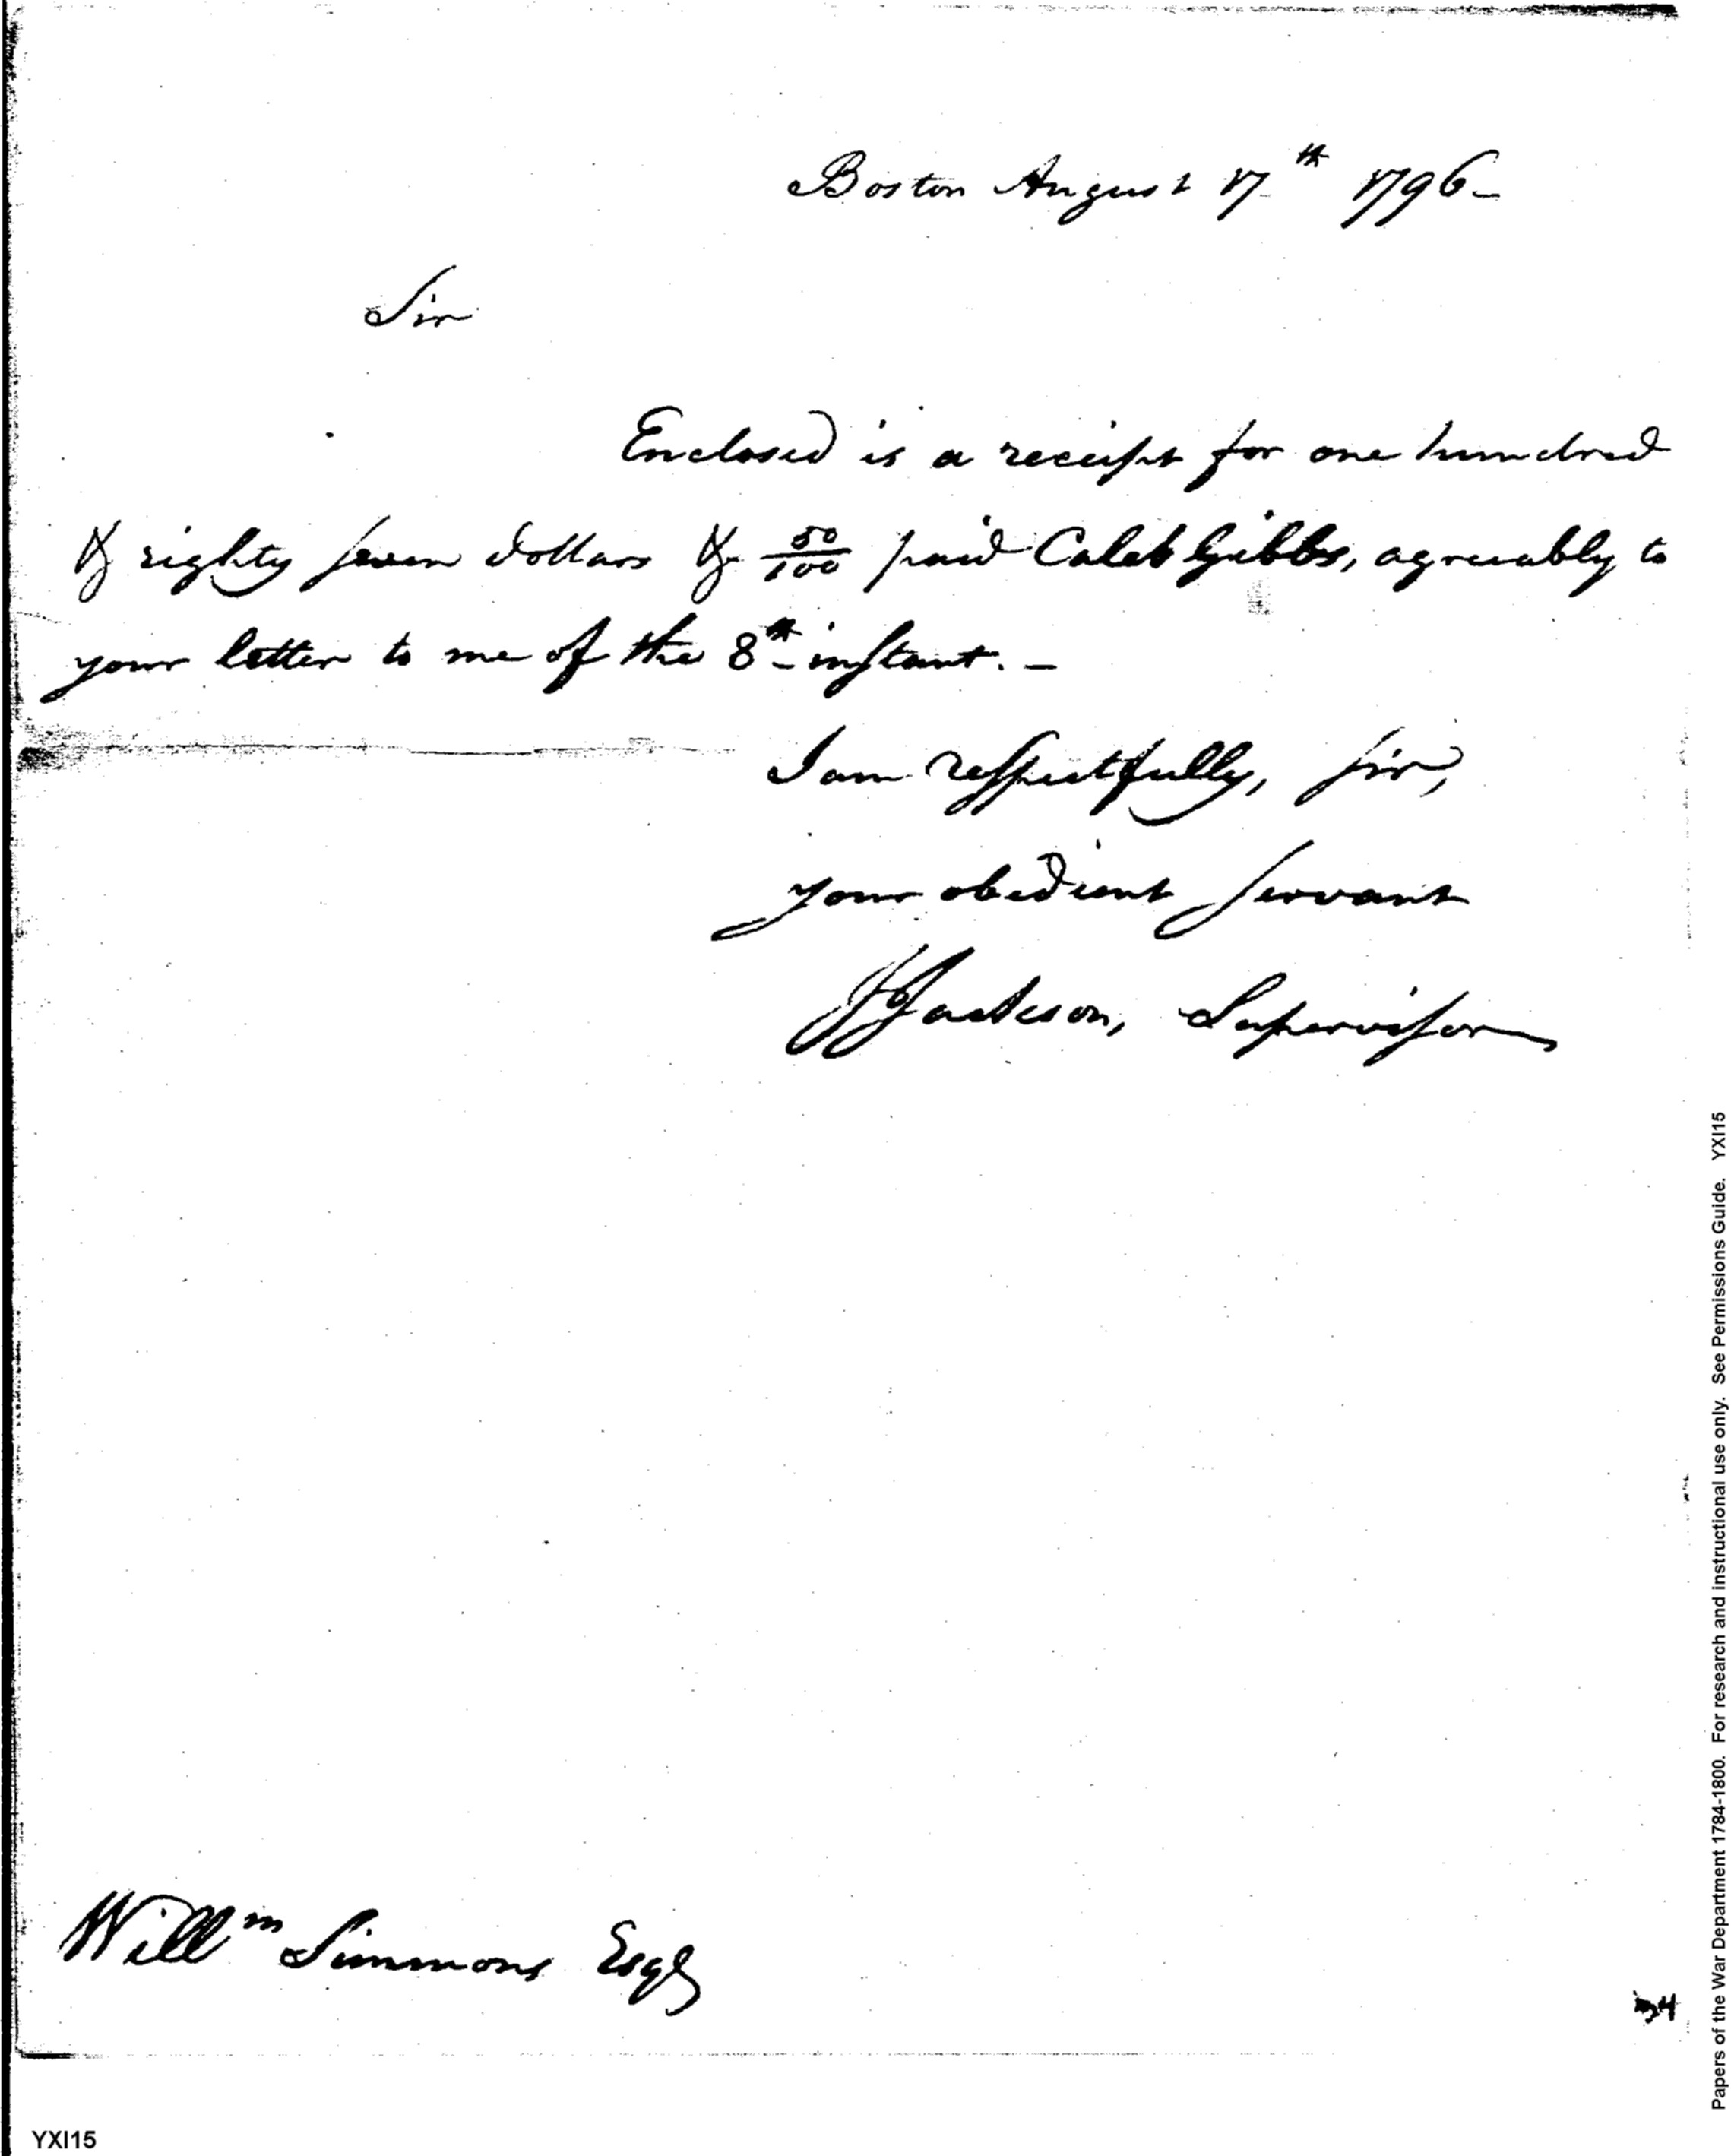 Boston August 17th 1796-
Sir
Enclosed is a receipt for one hundred
& eighty seven dollars & 50/100 paid Caleb Gibbs, agreeably to
your letter to me of the 8th instant. -
I am respectfully, sir,
your obedient servant
J Jackson, Supervisor
Willm Simmons Esqr
YXI15
Papers of the War Department 1784-1800. For research and instructional use only. See Permissions Guide. YXI15